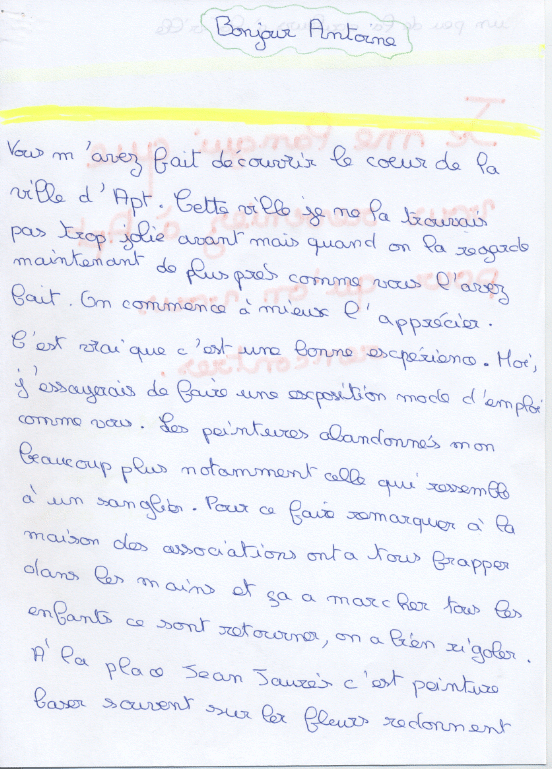 Bonjour Antoine
Vous m'avez fait découvrir le coeur de la
ville d'Apt. Cette ville je ne la trouvais
pas trop jolie avant mais quand on la regarde
maintenant de plus près comme vous l'avez
fait. On commence à mieux l'apprécier.
C'est vrai que c'est une bonne escpérience. Moi,
j'essayerais de faire une exposition mode d'emploi
comme vous. Les peintures abandonnés mon
beaucoup plus notamment celle qui ressemble
à un sanglier. Pour ce faire remarquer à la
maison des associations ont a tous frapper
dans les mains et ça a marcher tous les
enfants ce sont retourner, on a bien rigoler.
A la place Jean Jaurés c'est peinture
baser souvent sur les fleurs redonnent